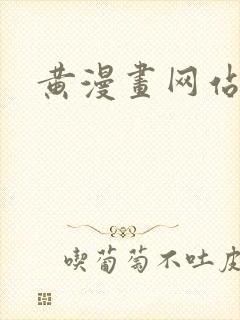 黄漫畫网佔
喫葡萄不吐皮